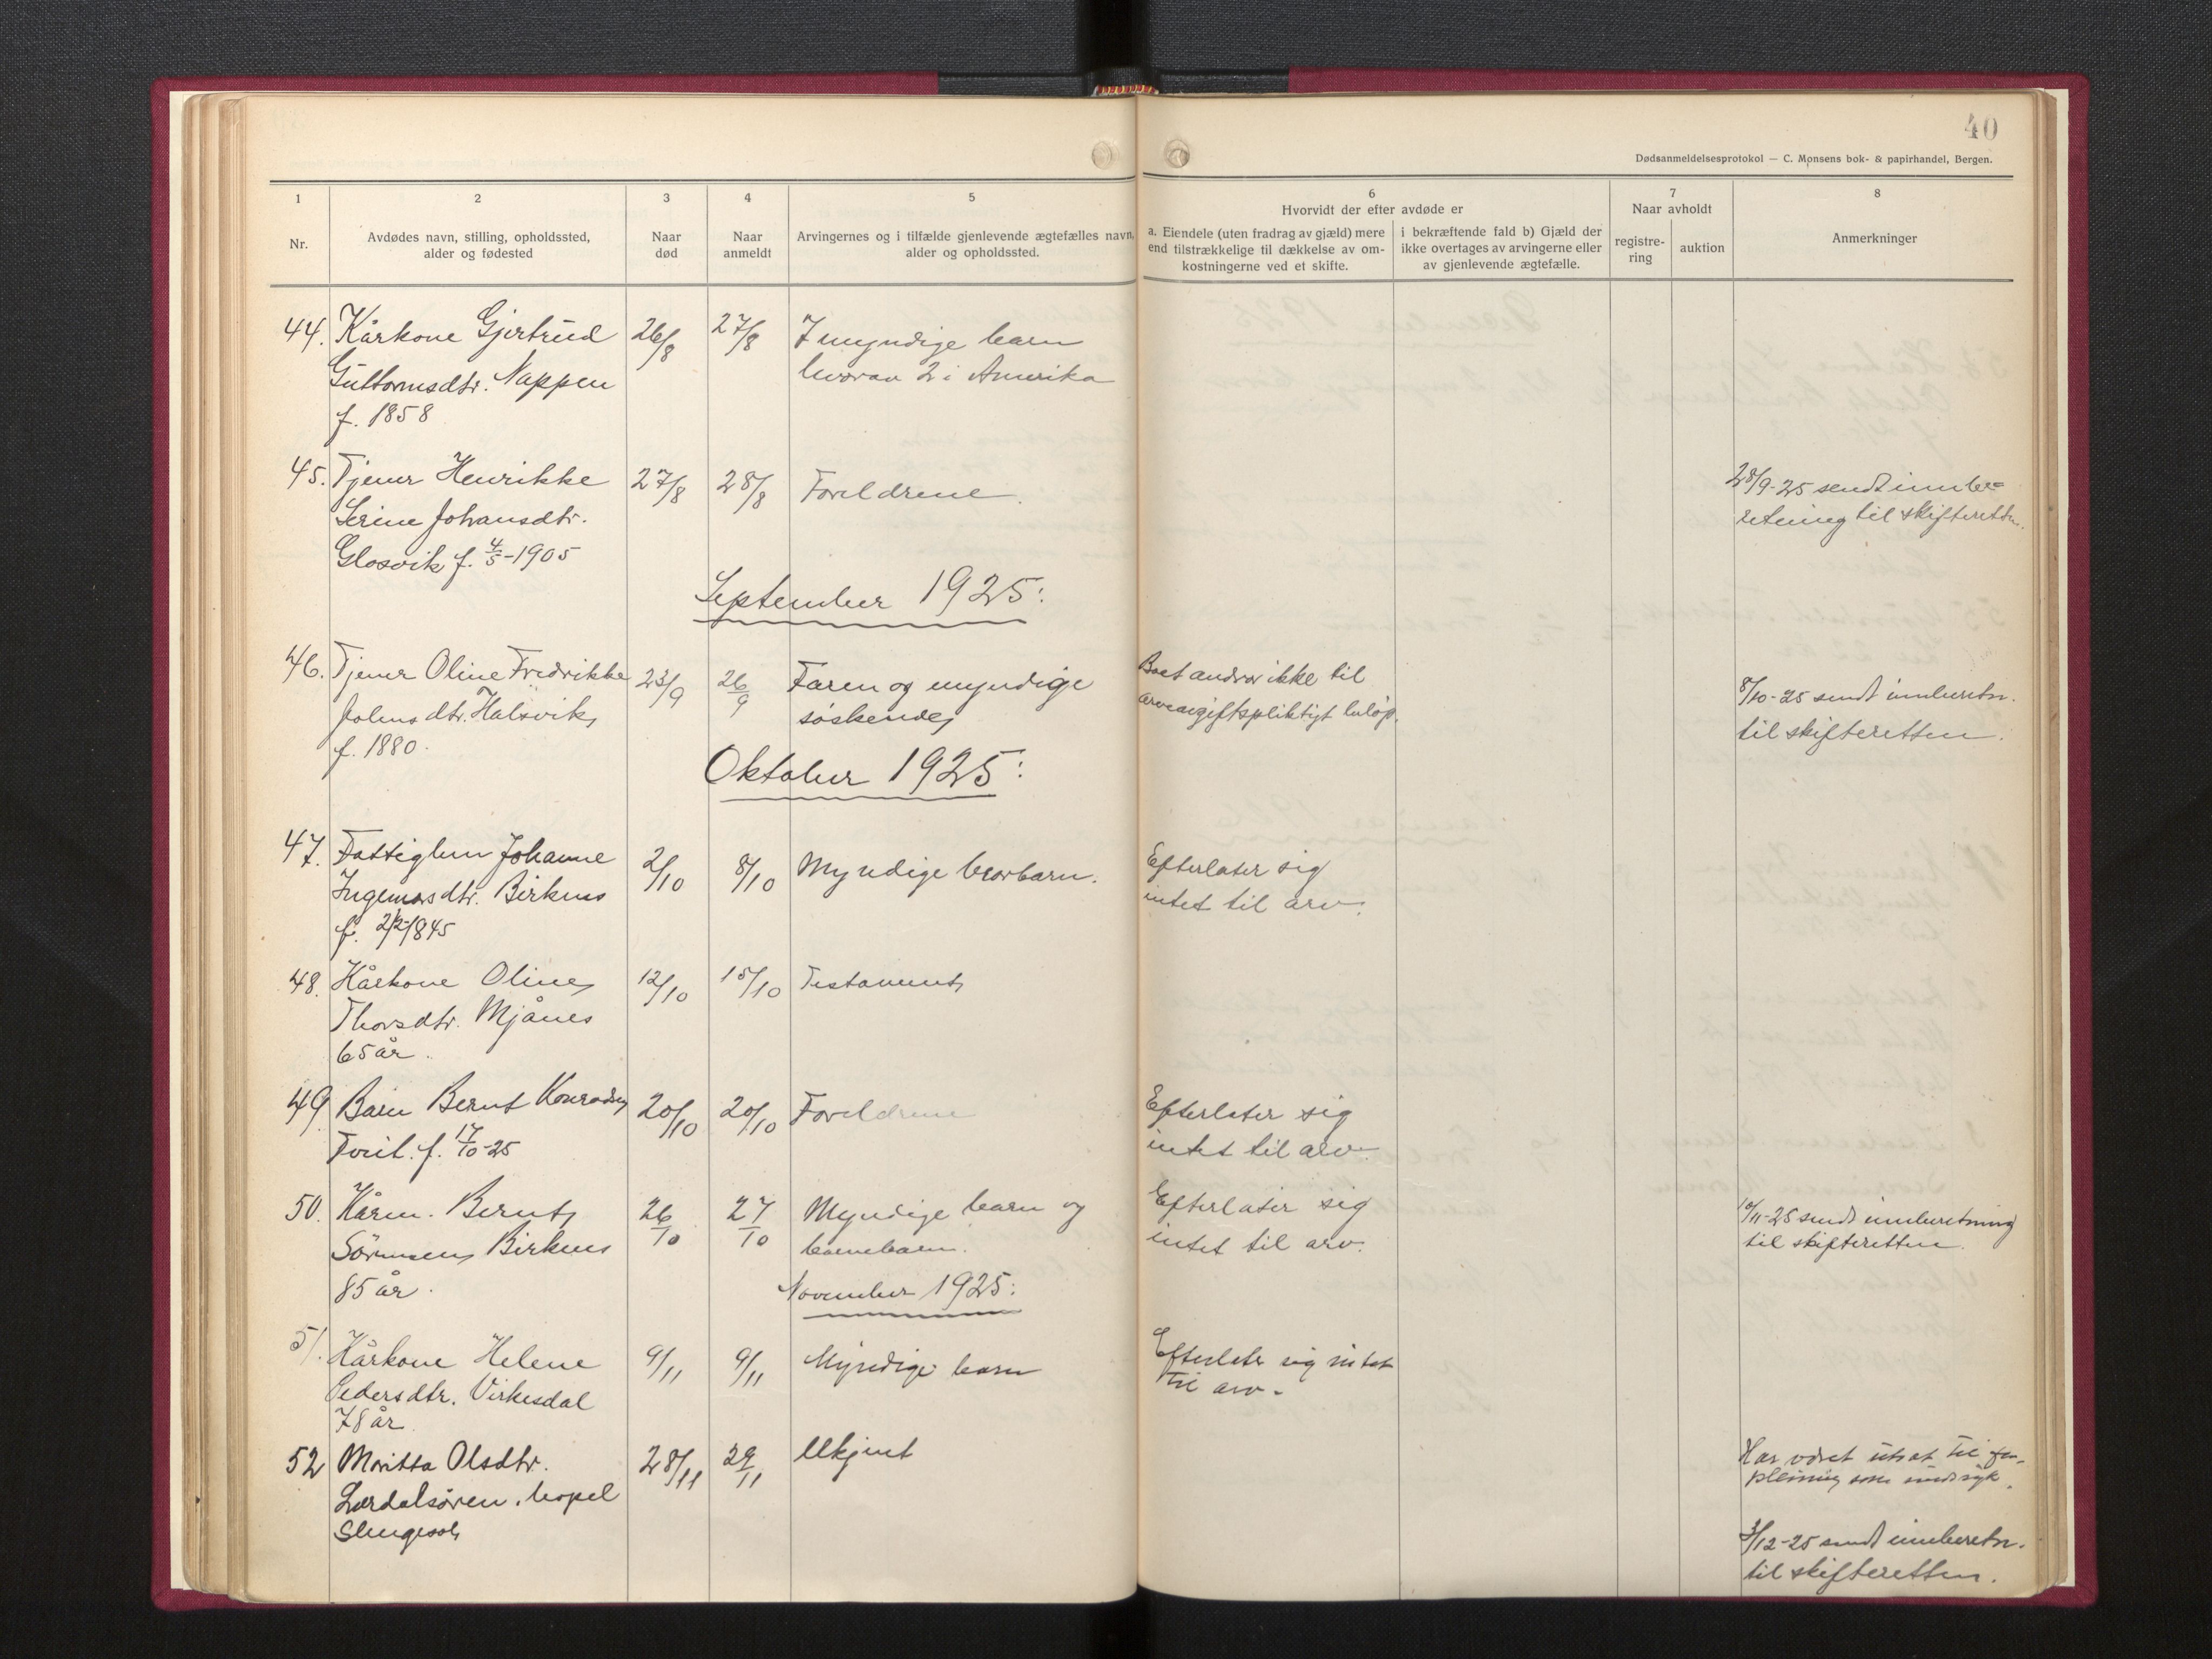 40
Dødsanmeldelsesprotokol — C. Monsens bok- & papirhandel, Bergen.
1 2 3 4 5 6 7 8
Nr.
Avdødes navn, stilling, opholdssted,
alder og fødested
Naar
død
Naar
anmeldt
Arvingernes og i tilfælde gjenlevende ægtefælles navn,
alder og opholdssted.
Hvorvidt der efter avdøde er
a. Eiendele (uten fradrag av gjæld) mere
end tilstrækkelige til dækkelse av om-
kostningerne ved et skifte.
i bekræftende fald b) Gjæld der
ikke overtages av arvingerne eller
av gjenlevende ægtefælle.
Naar avholdt
registre-
ring
auktion
Anmerkninger
44. Kårkone Gjertrud 26/8 27/8 7 myndige barn
Guttormsdtr. Nappen hvorav 2 i Amerika
f. 1858
45. Tjener Henrikke 27/8 28/8 Foreldrene. 28/9-25 sendt innbe=
Serine Johansdtr. retning til skifteretten.
Glosvik f. 4/5-1905
September 1925:
46. Tjener Oline Fredrikke 23/9 26/9 Faren og myndige Boet andrar ikke til 8/10-25 sendt innberetn.
Johnsdtr. Halsvik, søskende, arveavgiftspliktigt beløp. til skifteretten.
f. 1880.
Oktober 1925:
47. Fattiglem Johanne 2/10 8/10 Myndige brorbarn. Efterlater sig
Ingemarsdtr. Birknes intet til arv.
f. 2/2-1845
48. Kårkone Oline 12/10 15/10 Testament
Thorsdtr. Mjånes
65 år.
49 Barn Bernt Konradsen 20/10 20/10 Foreldrene Efterlater sig
f. 17/10-25 intet til arv.
50. Kårm. Bernt 26/10 27/10 Myndige barn og Efterlater sig 10/11-25 sendt innberetning
Sørensen Birknes barnebarn. intet til arv. til skifteretten.
85 år.
November 1925:
51. Kårkone Helene 9/11 9/11 Myndige barn Efterlater sig intet
Pedersdtr. Virkesdal til arv.
78 år.
52 Maritta Olsdtr. 28/11 29/11 Ukjent Har været utsat til for-
Lærdalsøren. pleining som sindssyk.
3/12-25 sendt innberetn.
til skifteretten.